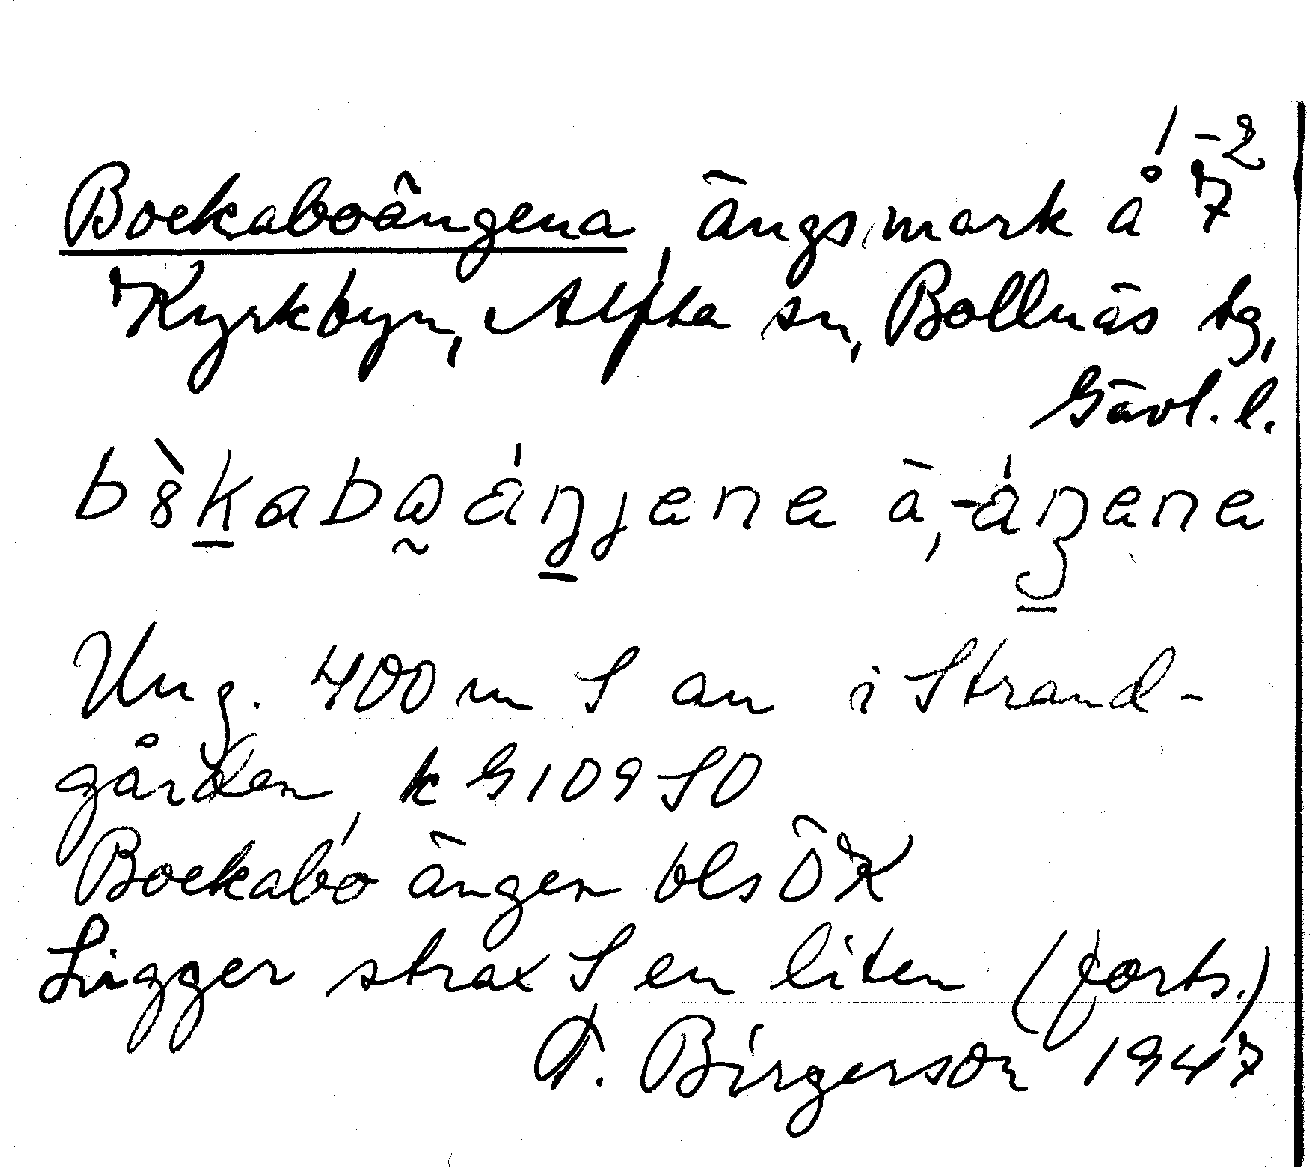 1-2
Bockaboängena, ängsmark å 7
Kyrkbyn, Alfta sn, Bollnäs tg,
Gävl. l.
Ung. 400 m S an i Strand-
gården k G109 SO
Bockabo ängen bls ÖK
Ligger strax S en liten (forts.)
Birgerson 1947